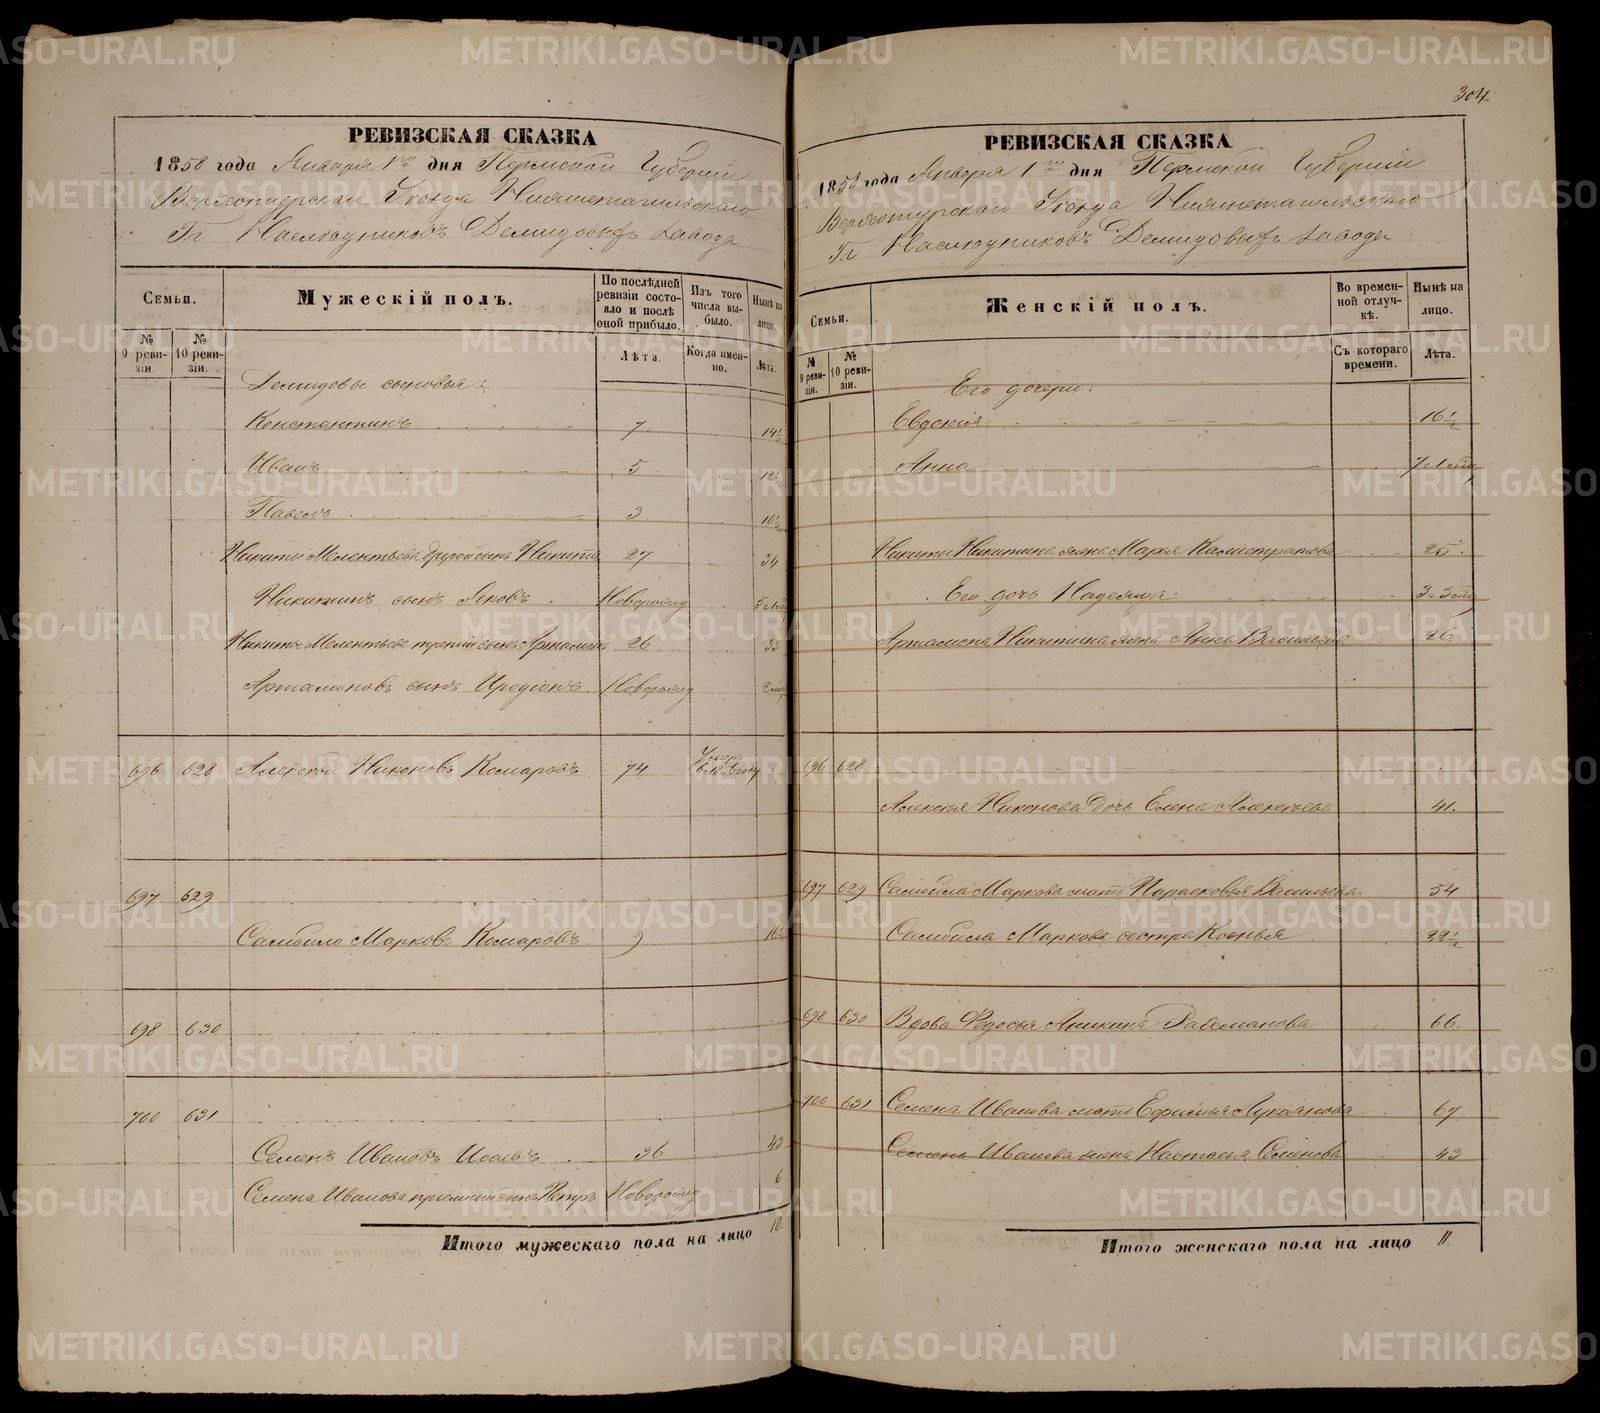 304
РЕВИЗСКАЯ СКАЗКА
1858 года Января 1го дня Пермской Губерніи
Верхотурскаго Уѣзда Нижнетагильскаго
Гг Наслѣдниковъ Демидовыхъ Завода
Семьи.
Мужескій полъ.
По послѣдней ревизіи состояло и послѣ оной прибыло.
Изъ того числа выбыло.
Нынѣ на лицо.
№ 9 ревизіи.
№ 10 ревизіи.
Лѣта.
Когда именно.
Лѣта.
Демидовы сыновья:
Константинъ 7 14½
Иванъ 5 12½
Павелъ 3 10½
Никиты Мелентьева другой сынъ Никита 27 34
Никитинъ сынъ Яковъ Новорожд
Никиты Мелентьева третій сынъ Артамонъ 26 33
Артамоновъ сынъ Новорожд
696 628 Алексѣй Никоновъ Комаровъ 74
697 629
Самойло Марковъ Комаровъ 9 16½
698 630
700 631
Семенъ Ивановъ 36 43
Семена Иванова пріемный сынъ Петръ Новорожд 6
Итого мужескаго пола на лицо 10.
РЕВИЗСКАЯ СКАЗКА
1858 года Января 1го дня Пермской Губерніи
Верхотурскаго Уѣзда Нижнетагильскаго
Гг Наслѣдниковъ Демидовыхъ Завода
Семьи.
Женскій полъ.
Во временной отлучкѣ.
Нынѣ на лицо.
№ 9 ревизіи.
№ 10 ревизіи.
Съ котораго времени.
Лѣта.
Его дочери:
Евдокія 16½
Анна
Никиты Никитина жена Марья Калистратова 25.
Его дочь Надежда
Артамона Никитина жена Анна Васильева 26
696 628
Алексѣя Никонова дочь Елена Алексѣева 41.
697 629 Самойла Маркова мать Парасковья Васильева 54
Самойла Маркова сестра Ксенья 22½
698 630 Вдова Федосья Аникина 66.
700 631 Семена Иванова мать Ефимья Лукоянова 67
Семена Иванова жена Настасья Семенова 43
Итого женскаго пола на лицо 11
METRIKI.GASO-URAL.RU